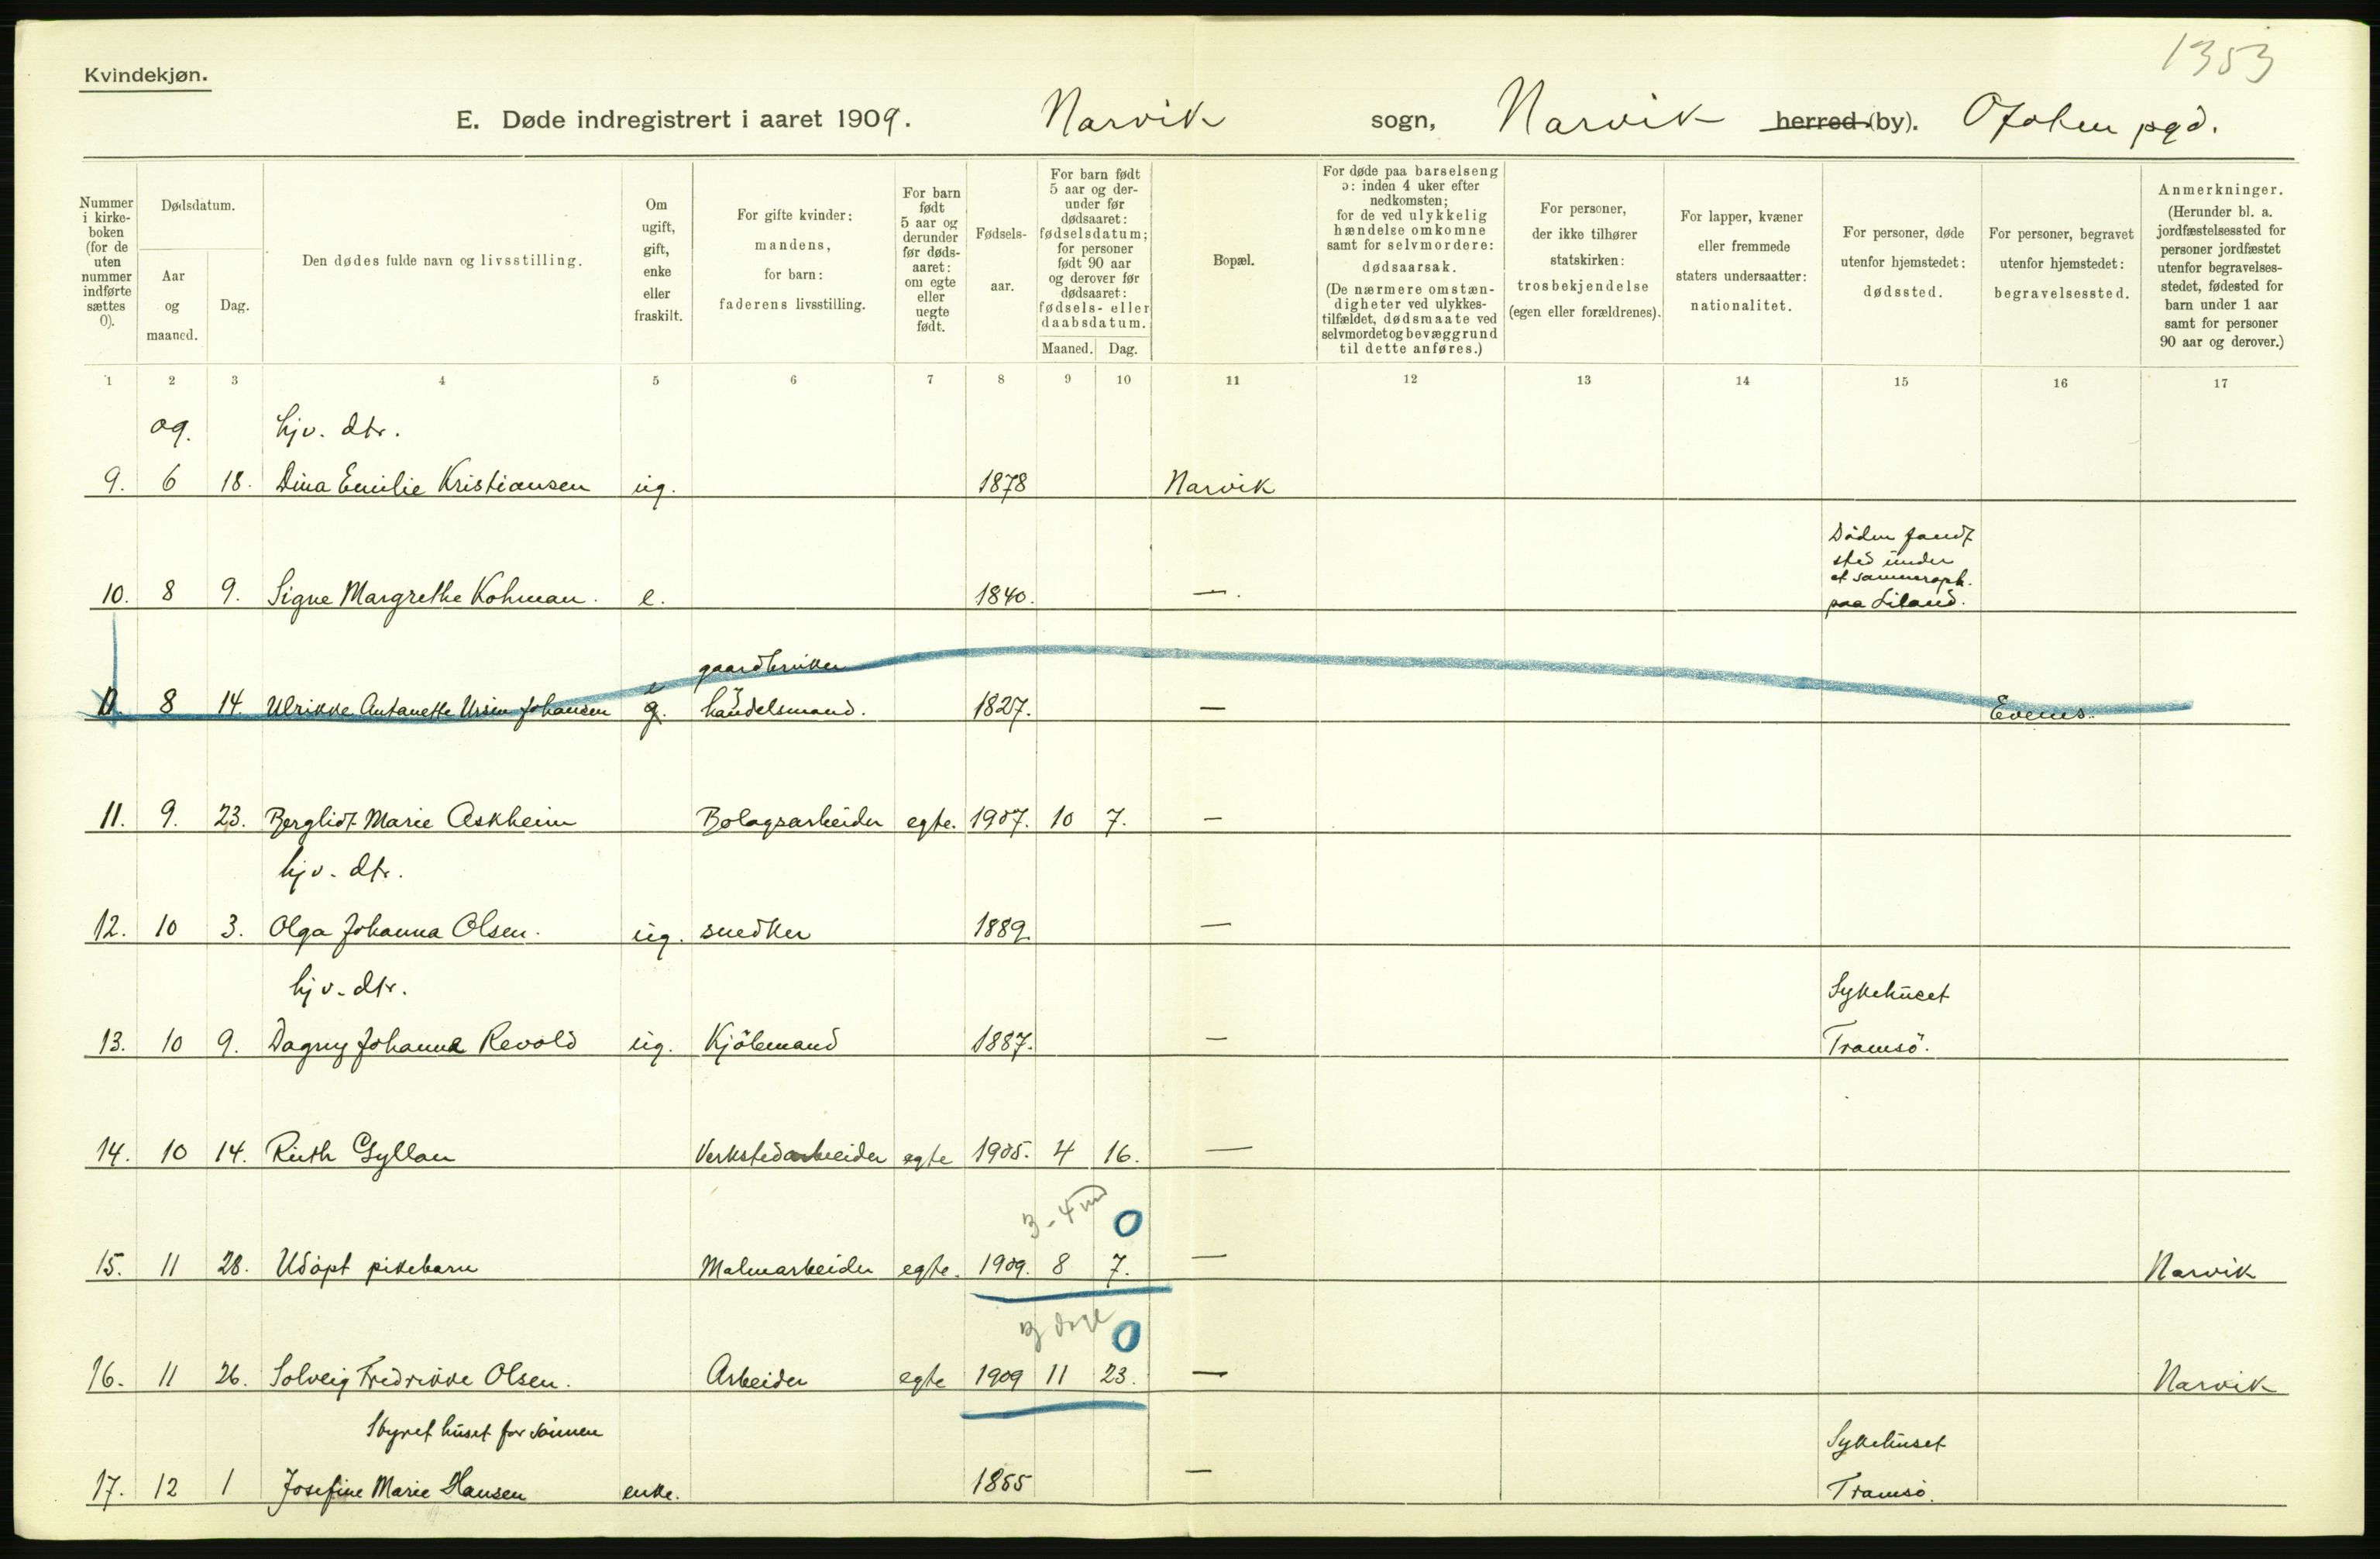 1353
Kvindekjøn.
E. Døde indregistrert i aaret 1909. Narvik sogn, Narvik herred (by). Ofoten pgd.
Nummer i kirke-boken (for de uten nummer indførte sættes 0).
Dødsdatum.
Aar og maaned.
Dag.
Den dødes fulde navn og livsstilling.
Om ugift, gift, enke eller fraskilt.
For gifte kvinder: mandens, for barn: faderens livsstilling.
For barn født 5 aar og derunder før døds-aaret: om egte eller uegte født.
Fødsels-aar.
For barn født 5 aar og der-under før dødsaaret: fødselsdatum; for personer født 90 aar og derover før dødsaaret: fødsels- eller daabsdatum.
Maaned. Dag.
Bopæl.
For døde paa barselseng ɔ: inden 4 uker efter nedkomsten; for de ved ulykkelig hændelse omkomne samt for selvmordere: dødsaarsak. (De nærmere omstæn-digheter ved ulykkes-tilfældet, dødsmaate ved selvmordet og bevæggrund til dette anføres.)
For personer, der ikke tilhører statskirken: trosbekjendelse (egen eller forældrenes).
For lapper, kvæner eller fremmede staters undersaatter: nationalitet.
For personer, døde utenfor hjemstedet: dødssted.
For personer, begravet utenfor hjemstedet: begravelsessted.
Anmerkninger. (Herunder bl. a. jordfæstelsessted for personer jordfæstet utenfor begravelses-stedet, fødested for barn under 1 aar samt for personer 90 aar og derover.)
1 2 3 4 5 6 7 8 9 10 11 12 13 14 15 16 17
09. hjv. dtr.
9. 6 18. Dina Emilie Kristiansen ug. 1878 Narvik
Döden fandt
sted under
et sommeroph.
10. 8 9. Signe Margrethe Kohman. e. 1840. — paa Liland.
e gaardbruker
11 8 14 Ulrikke Antanette Ursin Johansen g. handelsmand. 1827. — Evenes.
11. 9. 23. Bergliot Marie Askheim Bolagsarbeider egte. 1907. 10 7. —
hjv. dtr.
12. 10 3. Olga Johanna Olsen. ug. snedker 1889. —
hjv. dtr. Sykehuset
13. 10 9. Dagny Johanna Revold ug. Kjöbmand 1887. — Tromsö.
14. 10 14. Ruth Gyllan Verkstedarbeider egte 1905. 4 16. —
3-4 md 0
15. 11 28. Udöpt pikebarn Malmarbeider egte. 1909. 8 7. — Narvik
3 dage 0
16. 11 26. Solveig Fredrikke Olsen. Arbeider egte 1909 11 23. — Narvik
Styret huset for sönnen Sykehuset
17. 12 1 Josefine Marie Hansen enke. 1855 — Tromsö.